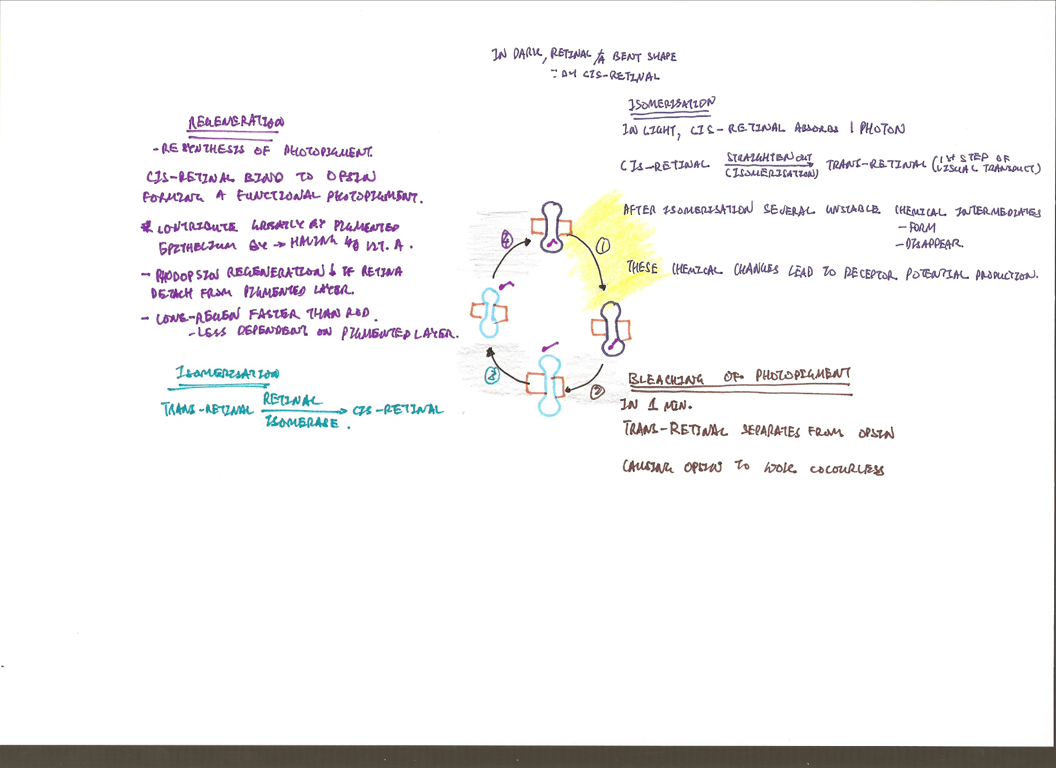 IN DARK, RETINAL BENT SHAPE
CIS-RETINAL
ISOMERISATION
IN LIGHT, CIS-RETINAL ABSORBS 1 PHOTON
CIS-RETINAL STRAIGHTEN OUT (ISOMERISATION) TRANS-RETINAL (1ST STEP OF VISUAL TRANSDUCT)
AFTER ISOMERISATION SEVERAL UNSTABLE CHEMICAL INTERMEDIATES
- FORM
- DISAPPEAR
THESE CHEMICAL CHANGES LEAD TO RECEPTOR POTENTIAL PRODUCTION.
1
BLEACHING OF PHOTOPIGMENT
IN 1 MIN.
TRANS-RETINAL SEPARATES FROM OPSIN
CAUSING OPSIN TO LOOK COLOURLESS
2
ISOMERISATION
TRANS-RETINAL RETINAL ISOMERASE. CIS-RETINAL
3
REGENERATION
- RESYNTHESIS OF PHOTOPIGMENT.
CIS-RETINAL BIND TO OPSIN
FORMING A FUNCTIONAL PHOTOPIGMENT.
* CONTRIBUTE GREATLY BY PIGMENTED
EPITHELIUM → HAVING VIT. A.
- RHODOPSIN REGENERATION ↓ IF RETINA
DETACH FROM PIGMENTED LAYER.
- CONE-REGEN FASTER THAN ROD.
- LESS DEPENDENT ON PIGMENTED LAYER.
4